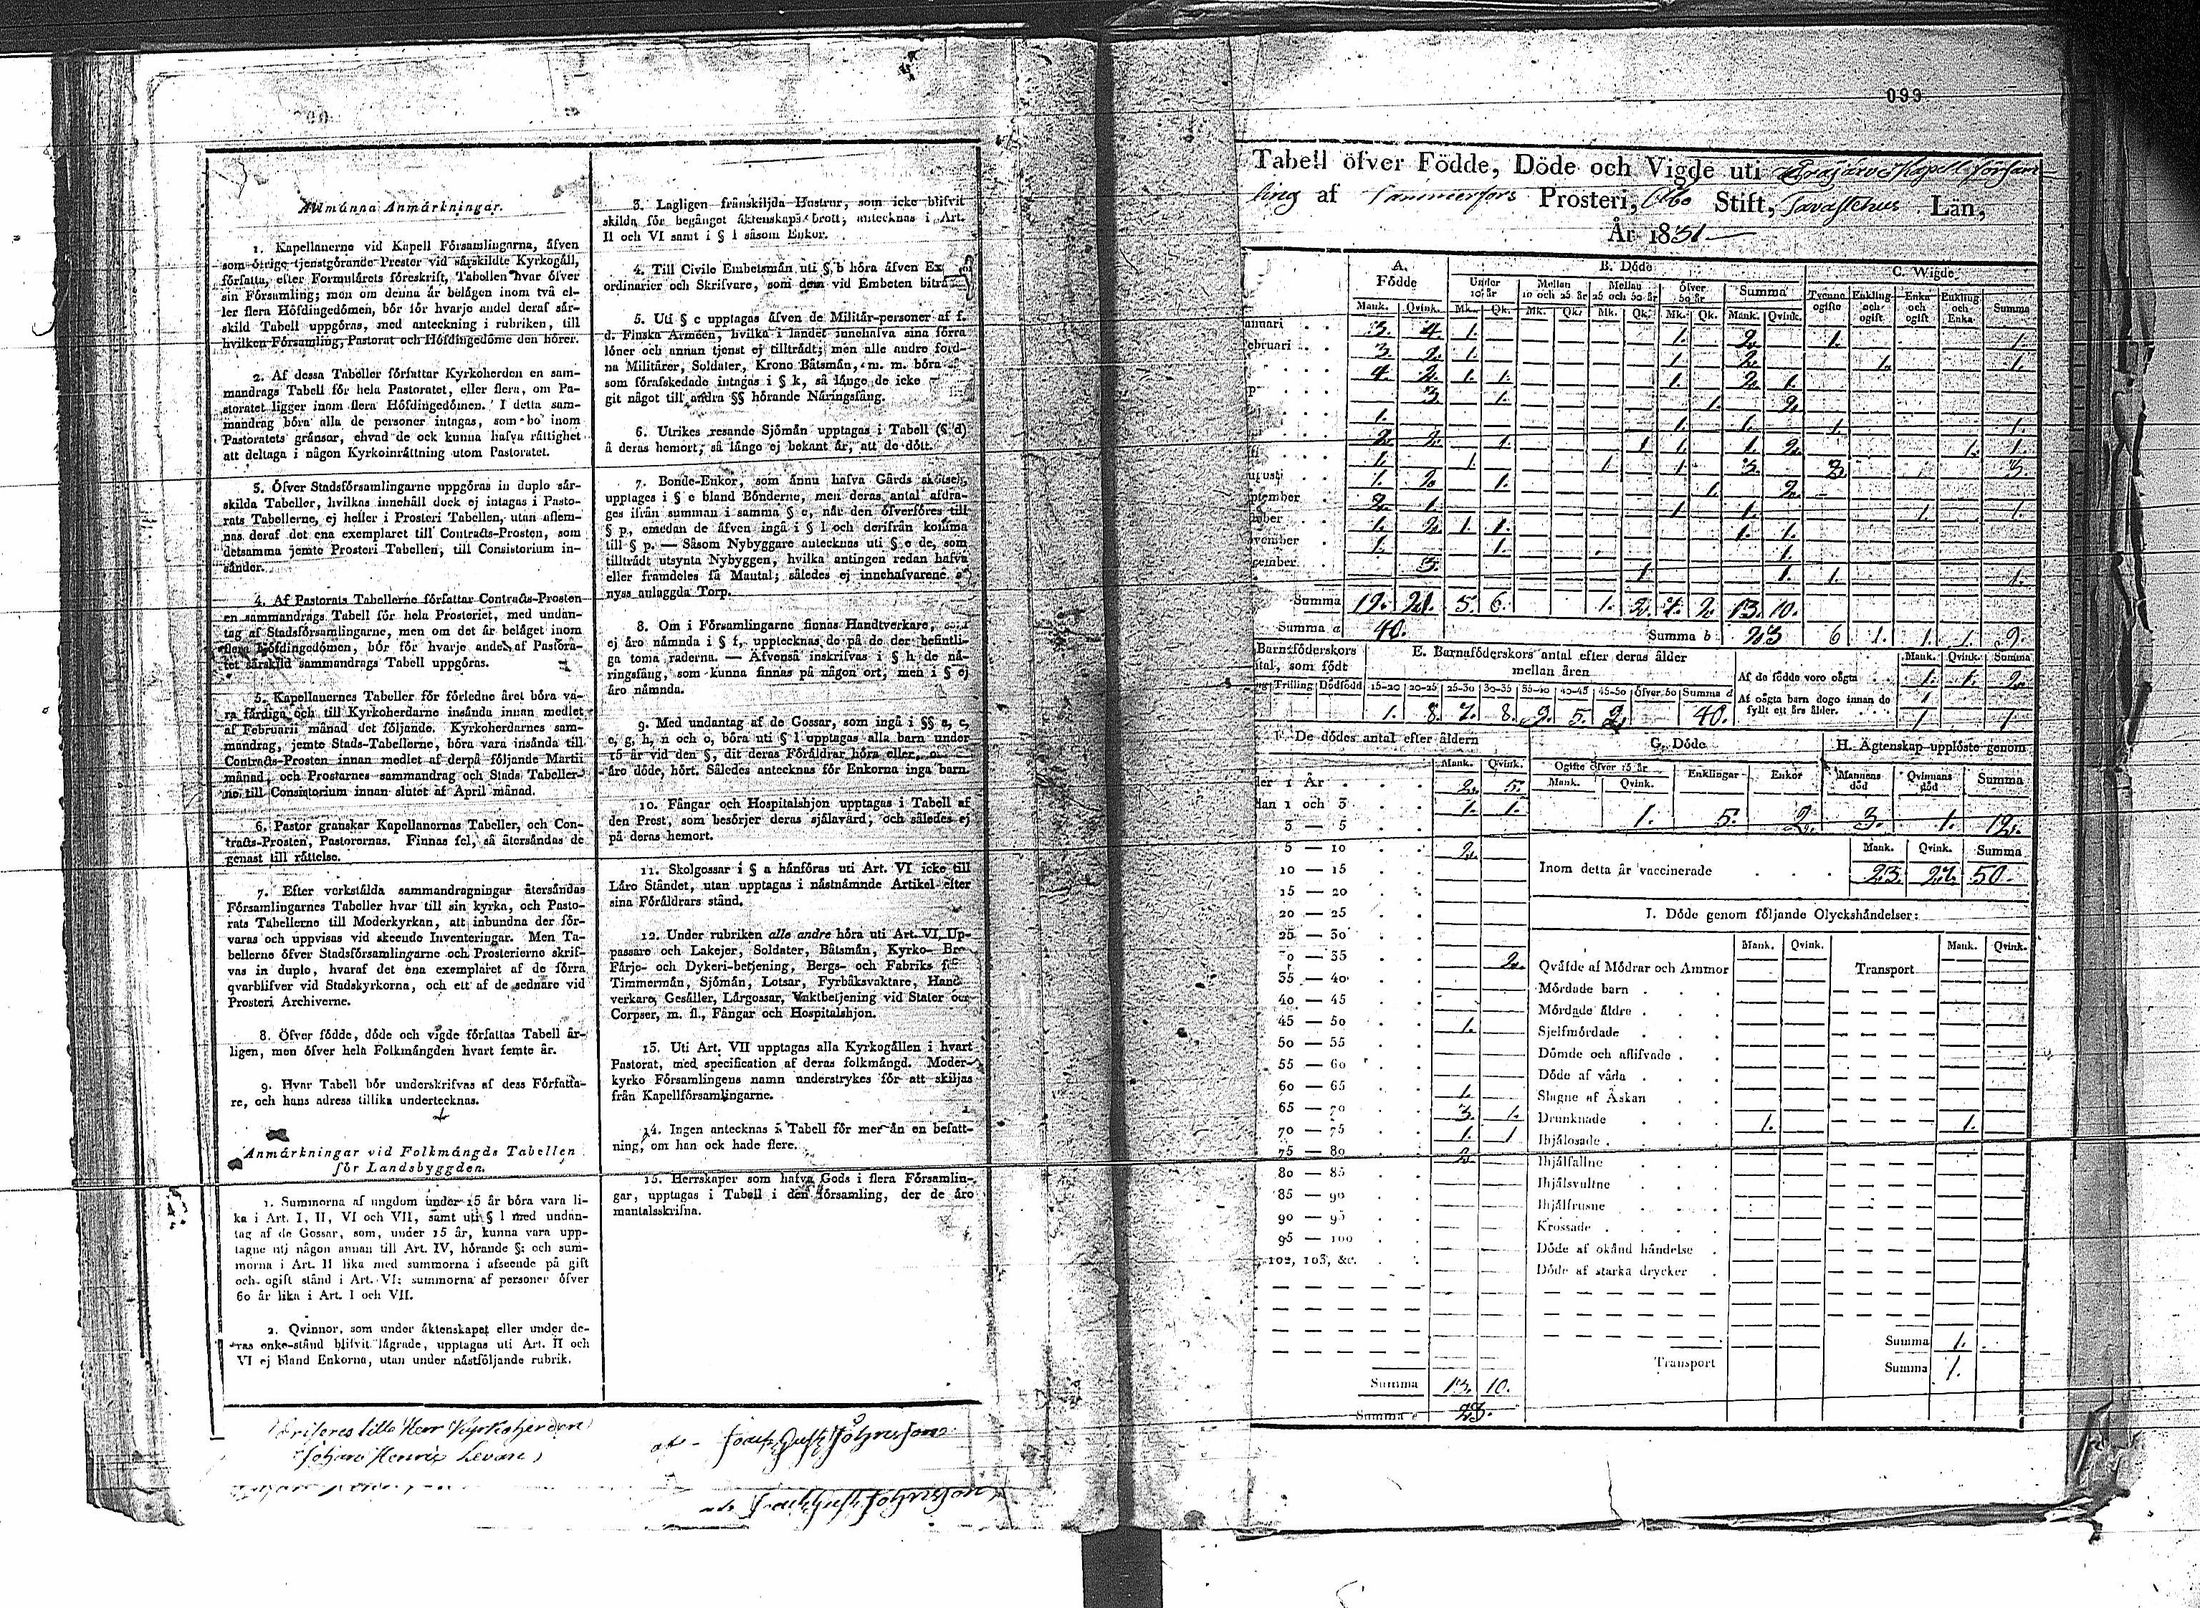 Allmänna Anmärkningar.
1. Kapellanerne vid Kapell Församlingarna, äfven
som öfrige tjenstgörande Prester vid särskildte Kyrkogäll,
författa, efter Formulärets föreskrift, Tabellen hvar öfver
sin Församling; men om denna är belägen inom två el-
ler flera Höfdingedömen, bör för hvarje andel deraf sär-
skild Tabell uppgöras, med anteckning i rubriken, till
hvilken Församling, Pastorat och Höfdingedöme den hörer.
2. Af dessa Tabeller författar Kyrkoherden en sam-
mandrags Tabell för hela Pastoratet, eller flera, om Pa-
storatet ligger inom flera Höfdingedömen. I detta sam-
mandrag böra alla de personer intagas, som bo inom
Pastoratets gränsor, ehvad de ock kunna hafva rättighet
att deltaga i någon Kyrkoinrättning utom Pastoratet.
3. Öfver Stadsförsamlingarne uppgöras in duplo sär-
skilda Tabeller, hvilkas innehåll dock ej intages i Pasto-
rats Tabellerne, ej heller i Prosteri Tabellen, utan aflem-
nas deraf det ena exemplaret till Contracts-Prosten, som
detsamma jemte Prosteri Tabellen, till Consistorium in-
sänder.
4. Af Pastorats Tabellerne författar Contracts-Prosten
en sammandrags Tabell för hela Prosteriet, med undan-
tag af Stadsförsamlingarne, men om det är beläget inom
flera Höfdingedömen, bör för hvarje andel af Pastora-
tet särskild sammandrags Tabell uppgöras.
5. Kapellanernes Tabeller för förledne året böra va-
ra färdiga och till Kyrkoherdarne insända innan medlet
af Februarii månad det följande. Kyrkoherdarnes sam-
mandrag, jemte Stads-Tabellerne, böra vara insända till
Contracts-Prosten innan medlet af derpå följande Martii
månad, och Prostarnes sammandrag och Stads Tabeller-
ne till Consistorium innan slutet af April månad.
6. Pastor granskar Kapellanernas Tabeller, och Con-
tracts-Prosten, Pastorernas. Finnas fel, så återsändas de
genast till rättelse.
7. Efter verkstälda sammandragningar återsändas
Församlingarnes Tabeller hvar till sin kyrka, och Pasto-
rats Tabellerne till Moderkyrkan, att inbundna der för-
varas och uppvisas vid skeende Inventeringar. Men Ta-
bellerne öfver Stadsförsamlingarne och Prosterierne skrif-
vas in duplo, hvaraf det ena exemplaret af de förra
qvarblifver vid Stadskyrkorna, och ett af de sednare vid
Prosteri Archiverne.
8. Öfver födde, döde och vigde författas Tabell år-
ligen, men öfver hela Folkmängden hvart femte år.
9. Hvar Tabell bör underskrifvas af dess Författa-
re, och hans adress tillika undertecknas.
Anmärkningar vid Folkmängds Tabellen
för Landsbyggden.
1. Summorna af ungdom under 15 år böra vara li-
ka i Art. I, II, VI och VII, samt uti § l med undan-
tag af de Gossar, som, under 15 år, kunna vara upp-
tagne utj någon annan till Art. IV, hörande §: och sum-
morna i Art. II lika med summorna i afseende på gift
och ogift stånd i Art. VI: summorna af personer öfver
60 år lika i Art. I och VII.
2. Qvinnor, som under äktenskapet eller under de-
ras enke-stånd blifvit lägrade, upptagas uti Art. II och
VI ej bland Enkorna, utan under nästföljande rubrik.
3. Lagligen frånskiljda Hustrur, som icke blifvit
skilda för begånget äktenskaps brott, antecknas i Art.
II och VI samt i § l såsom Enkor.
4. Till Civile Embetsmän uti § b höra äfven Ex
ordinarier och Skrifvare, som dem vid Embeten biträ
5. Uti § c upptagas äfven de Militär-personer af f.
d. Finska Arméen, hvilka i landet innehafva sina förra
löner och annan tjenst ej tillträdt; men alle andre ford-
na Militärer, Soldater, Krono Båtsmän, m. m. böra
som förafskedade intagas i § k, så länge de icke
git något till andra §§ hörande Näringsfång.
6. Utrikes resande Sjömän upptagas i Tabell (§ d)
å deras hemort, så länge ej bekant är, att de dött.
7. Bonde-Enkor, som ännu hafva Gårds skötsel,
upptages i § e bland Bönderne, men deras antal afdra-
ges ifrån summan i samma § e, när den öfverföres till
§ p, emedan de äfven ingå i § l och derifrån komma
till § p. — Såsom Nybyggare antecknas uti § e de, som
tillträdt utsynta Nybyggen, hvilka antingen redan hafva
eller framdeles få Mantal; således ej innehafvarene af
nyss anlaggda Torp.
8. Om i Församlingarne finnas Handtverkare,
ej äro nämnda i § f, upptecknas de på de der befintli-
ga toma raderna. — Äfvenså inskrifvas i § h de nä-
ringsfång, som kunna finnas på någon ort, men i § ej
äro nämnda.
9. Med undantag af de Gossar, som ingå i §§ a, c,
e, g, h, n och o, böra uti § l upptagas alla barn under
15 år vid den §, dit deras Föräldrar höra eller,
äro döde, hört. Således antecknas för Enkorna inga barn.
10. Fångar och Hospitalshjon upptagas i Tabell af
den Prest, som besörjer deras själavård, och således ej
på deras hemort.
11. Skolgossar i § a hänföras uti Art. VI icke till
Läro Ståndet, utan upptagas i nästnämnde Artikel efter
sina Föräldrars stånd.
12. Under rubriken alle andre höra uti Art. VI, Up-
passare och Lakejer, Soldater, Båtsmän, Kyrko- Bro
Färje- och Dykeri-betjening, Bergs- och Fabriks
Timmermän, Sjömän, Lotsar, Fyrbåksvaktare, Hand
verkare, Gesäller, Lärgossar, Vaktbetjening vid Stater och
Corpser, m. fl., Fångar och Hospitalshjon.
13. Uti Art. VII upptagas alla Kyrkogällen i hvart
Pastorat, med specification af deras folkmängd. Moder-
kyrko Församlingens namn understrykes för att skiljas
från Kapellförsamlingarne.
14. Ingen antecknas i Tabell för mer än en befatt-
ning, om han ock hade flere.
15. Herrskaper som hafva Gods i flera Församlin-
gar, upptagas i Tabell i den församling, der de äro
mantalsskrifna.
Kyrkoherden
Johan Henric Levan
099
Tabell öfver Födde, Döde och Vigde uti Eräjärvi Kapell församl
ling af Tammerfors Prosteri, Åbo Stift, Tavastehus Län,
År 1831
A. Födde B. Döde C. Wigde
Under 10 år Mellan 10 och 25 år Mellan 25 och 50 år Öfver 50 år Summa Tvenne ogifte Enkling och ogift Enka och ogift Enkling och Enka Summa
Mank. Qvink. Mk. Qk. Mk. Qk. Mk. Qk. Mk. Qk. Mank. Qvink.
anuari 3. 4. 1. 1. 2. 1. 1.
ebruari 3. 2. 1. 1. 2. 1. 1.
4. 2. 1. 1. 1. 2. 1.
3. 1. 1. 2.
1. 1. 1. 1. 1.
2. 2. 1. 1 1. 1. 2. 1. 1.
1. 1. 1. 1. 3. 3. 3.
ugusti 1. 2. 1. 1. 2.
ptember 2. 1. 1. 1. 1. 1.
ober 1. 2. 1. 1. 1. 1.
ovember 1. 1. 1.
cember 3. 1. 1. 1. 1.
Summa 19. 21. 5. 6. 1. 2. 7. 2. 13. 10.
Summa a 40. Summa b 23 6 1. 1. 1. 9.
Barnsföderskors
tal, som födt
Trilling Dödfödd
E. Barnsföderskors antal efter deras ålder
mellan åren
15-20 20-25 25-30 30-35 35-40 40-45 45-50 öfver 50 Summa d
1. 8. 7. 8. 9. 5. 2. 40.
Mank. Qvink. Summa
Af de födde voro oägta 1. 1. 2.
Af oägta barn dogo innan de
fyllt ett års ålder. 1 1
F. De dödes antal efter åldern
Mank. Qvink.
der 1 År 2. 5.
lan 1 och 3 1. 1.
3 — 5
5 — 10 2.
10 — 15
15 — 20
20 — 25
25 — 30
0 — 35 2.
35 — 40
40 — 45
45 — 50 1.
50 — 55
55 — 60
60 — 65 1.
65 — 70 3. 1.
70 — 75 1. 1
75 — 80 2.
80 — 85
85 — 90
90 — 95
95 — 100
102, 103, &c.
Summa 13. 10.
Summa 23.
G. Döde
Ogifte öfver 15 år Enklingar Enkor
Mank. Qvink.
1. 5. 2.
H. Ägtenskap upplöste genom
Mannens död Qvinnans död Summa
3. 1.
Mank. Qvink. Summa
Inom detta år vaccinerade 23. 27. 50.
I. Döde genom följande Olyckshändelser:
Mank. Qvink. Mank. Qvink.
Qväfde af Mödrar och Ammor Transport
Mördade barn
Mördade äldre
Sjelfmördade
Dömde och aflifvade
Döde af våda
Slagne af Åskan
Drunknade 1. 1.
Ihjälosade
Ihjälfallne
Ihjälsvultne
Ihjälfrusne
Krossade
Döde af okänd händelse
Döde af starka drycker
Summa 1.
Transport Summa 1.